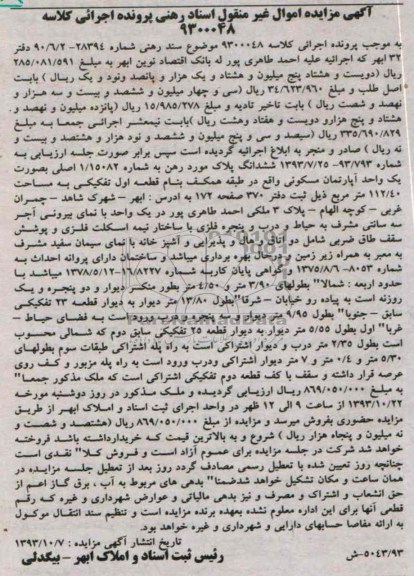 آگهی مزایده اموال غیر منقول اسناد رهنی پرونده اجرائی کلاسه
۹۳۰۰۰۴۸
به موجب پرونده اجرائی کلاسه ۹۳۰۰۰۴۸ موضوع سند رهنی شماره ۲۸۳۹۴- ۹۰/۶/۲ دفتر
۳۲ ابهر که اجرائیه علیه احمد طاهری پور له بانک اقتصاد نوین ابهر به مبلغ ۲۸۵/۰۸۱/۵۹۱
ریال (دویست و هشتاد پنج میلیون و هشتاد و یک هزار و پانصد ونود و یک ریال) بابت
اصل طلب و مبلغ ۳۴/۶۲۳/۹۶۰ ریال (سی و چهار میلیون و ششصد و بیست و سه هزار و
نهصد و شصت ریال) بابت تاخیر تادیه و مبلغ ۱۵/۹۸۵/۲۷۸ ریال (پانزده میلیون و نهصد و
هشتاد و پنج هزارو دویست و هفتاد وهشت ریال) بابت نیمعشر اجرائی جمعا به مبلغ
۳۳۵/۶۹۰/۸۲۹ ریال (سیصد و سی و پنج میلیون و ششصد و نود هزار و هشتصد و بیست و
نه ریال) صادر و منجر به ابلاغ اجرائیه گردیده است سپس برابر صورت جلسه ارزیابی به
شماره ۹۳/۷۹۳- ۱۳۹۳/۷/۲۵ ششدانگ پلاک مورد رهن به شماره ۱/۱۵۰۸۲ اصلی بصورت
یک واحد آپارتمان مسکونی واقع در طبقه همکف بنام قطعه اول تفکیکی به مساحت
۱۱۲/۴۰ متر مربع ذیل ثبت دفتر ۳۷۰ صفحه ۱۷۲ به ادرس : ابهر – شهرک شاهد – چمران
غربی – کوچه الهام – پلاک ۳ ملکی احمد طاهری پور در یک واحد با نمای بیرونی آجر
سه سانتی مشرف به حیاط و درب و پنجره فلزی با ساختار نیمه اسکلت فلزی و پوشش
سقف طاق ضربی شامل دو اتاق، هال و پذیرایی و آشپز خانه با نمای سیمان سفید مشرف
به معبر به همراه زیر زمین و درحال بهره برداری میباشد و ساختمان دارای پروانه احداث به
شماره ۸۰۵۳- ۱۳۷۵/۸/۶ و گواهی پایان کاربه شماره ۱۶/۸۲۲۷-۱۳۷۸/۵/۱۲ میباشد با
حدود اربعه : شمالا" بطولهای ۳/۹۰ متر و ۴/۵۰ متر بطور منکسر دیوار و دو پنجره و یک
روزنه است به پیاده رو خیابان – شرقا"بطول ۱۳/۸۰ متر دیوار به دیوار قطعه ۲۳ تفکیکی
سابق – جنوبا" بطول ۹/۹۵ متر دیوار و سه پنجره و درب ورود است به فضای حیاط –
غربا" اول بطول ۵/۵۵ متر دیوار به دیوار قطعه ۲۵ تفکیکی سابق دوم که شمالی محسوب
است بطول ۲/۳۵ متر درب و دیوار اشتراکی است به راه پله اشتراکی طبقات سوم بطولهای
۵/۳۰ متر و ۰/۴ متر و ۷ متر دیوار اشتراکی ودرب ورود است به راه پله مزبور و کف روی
عرصه قرار داشته و سقف با کف قطعه دوم تفکیکی اشتراکی است که ملک مذکور جمعا"
به مبلغ ۸۶۹/۰۵۰/۰۰۰ ریال ارزیابی گردیده و ملک مذکور در روز دوشنبه مورخه
۱۳۹۳/۱۰/۲۲ از ساعت ۹ الی ۱۲ ظهر در واحد اجرای ثبت اسناد و املاک ابهر از طریق
مزایده حضوری بفروش میرسد و مزایده از مبلغ ۸۶۹/۰۵۰/۰۰۰ ریال (هشتصد و شصت و
نه میلیون و پنجاه هزار ریال) شروع و به بالاترین قیمت که خریدارداشته باشد فروخته
خواهد شد شرکت در جلسه مزایده برای عموم آزاد است و فروش کلا" نقدی است
چنانچه روز تعیین شده با تعطیل رسمی مصادف گردد روز بعد از تعطیل جلسه مزایده در
همان ساعت و مکان تشکیل خواهد شدضمنا" بدهی های مربوط به آب ، برق گاز اعم از
حق انشعاب و اشتراک و مصرف و نیز بدهی مالیاتی و عوارض شهرداری و غیره که رقم
قطعی آنها برای این اداره معلوم نشده بعهده برنده مزایده است و تنظیم سند انتقال موکول
به ارائه مفاصا حسابهای دارایی و شهرداری و غیره خواهد بود.
تاریخ انتشار آگهی مزایده : ۱۳۹۳/۱۰/۷
۵۰۴۳/۹۳-ش رئیس ثبت اسناد و املاک ابهر – بیگدلی